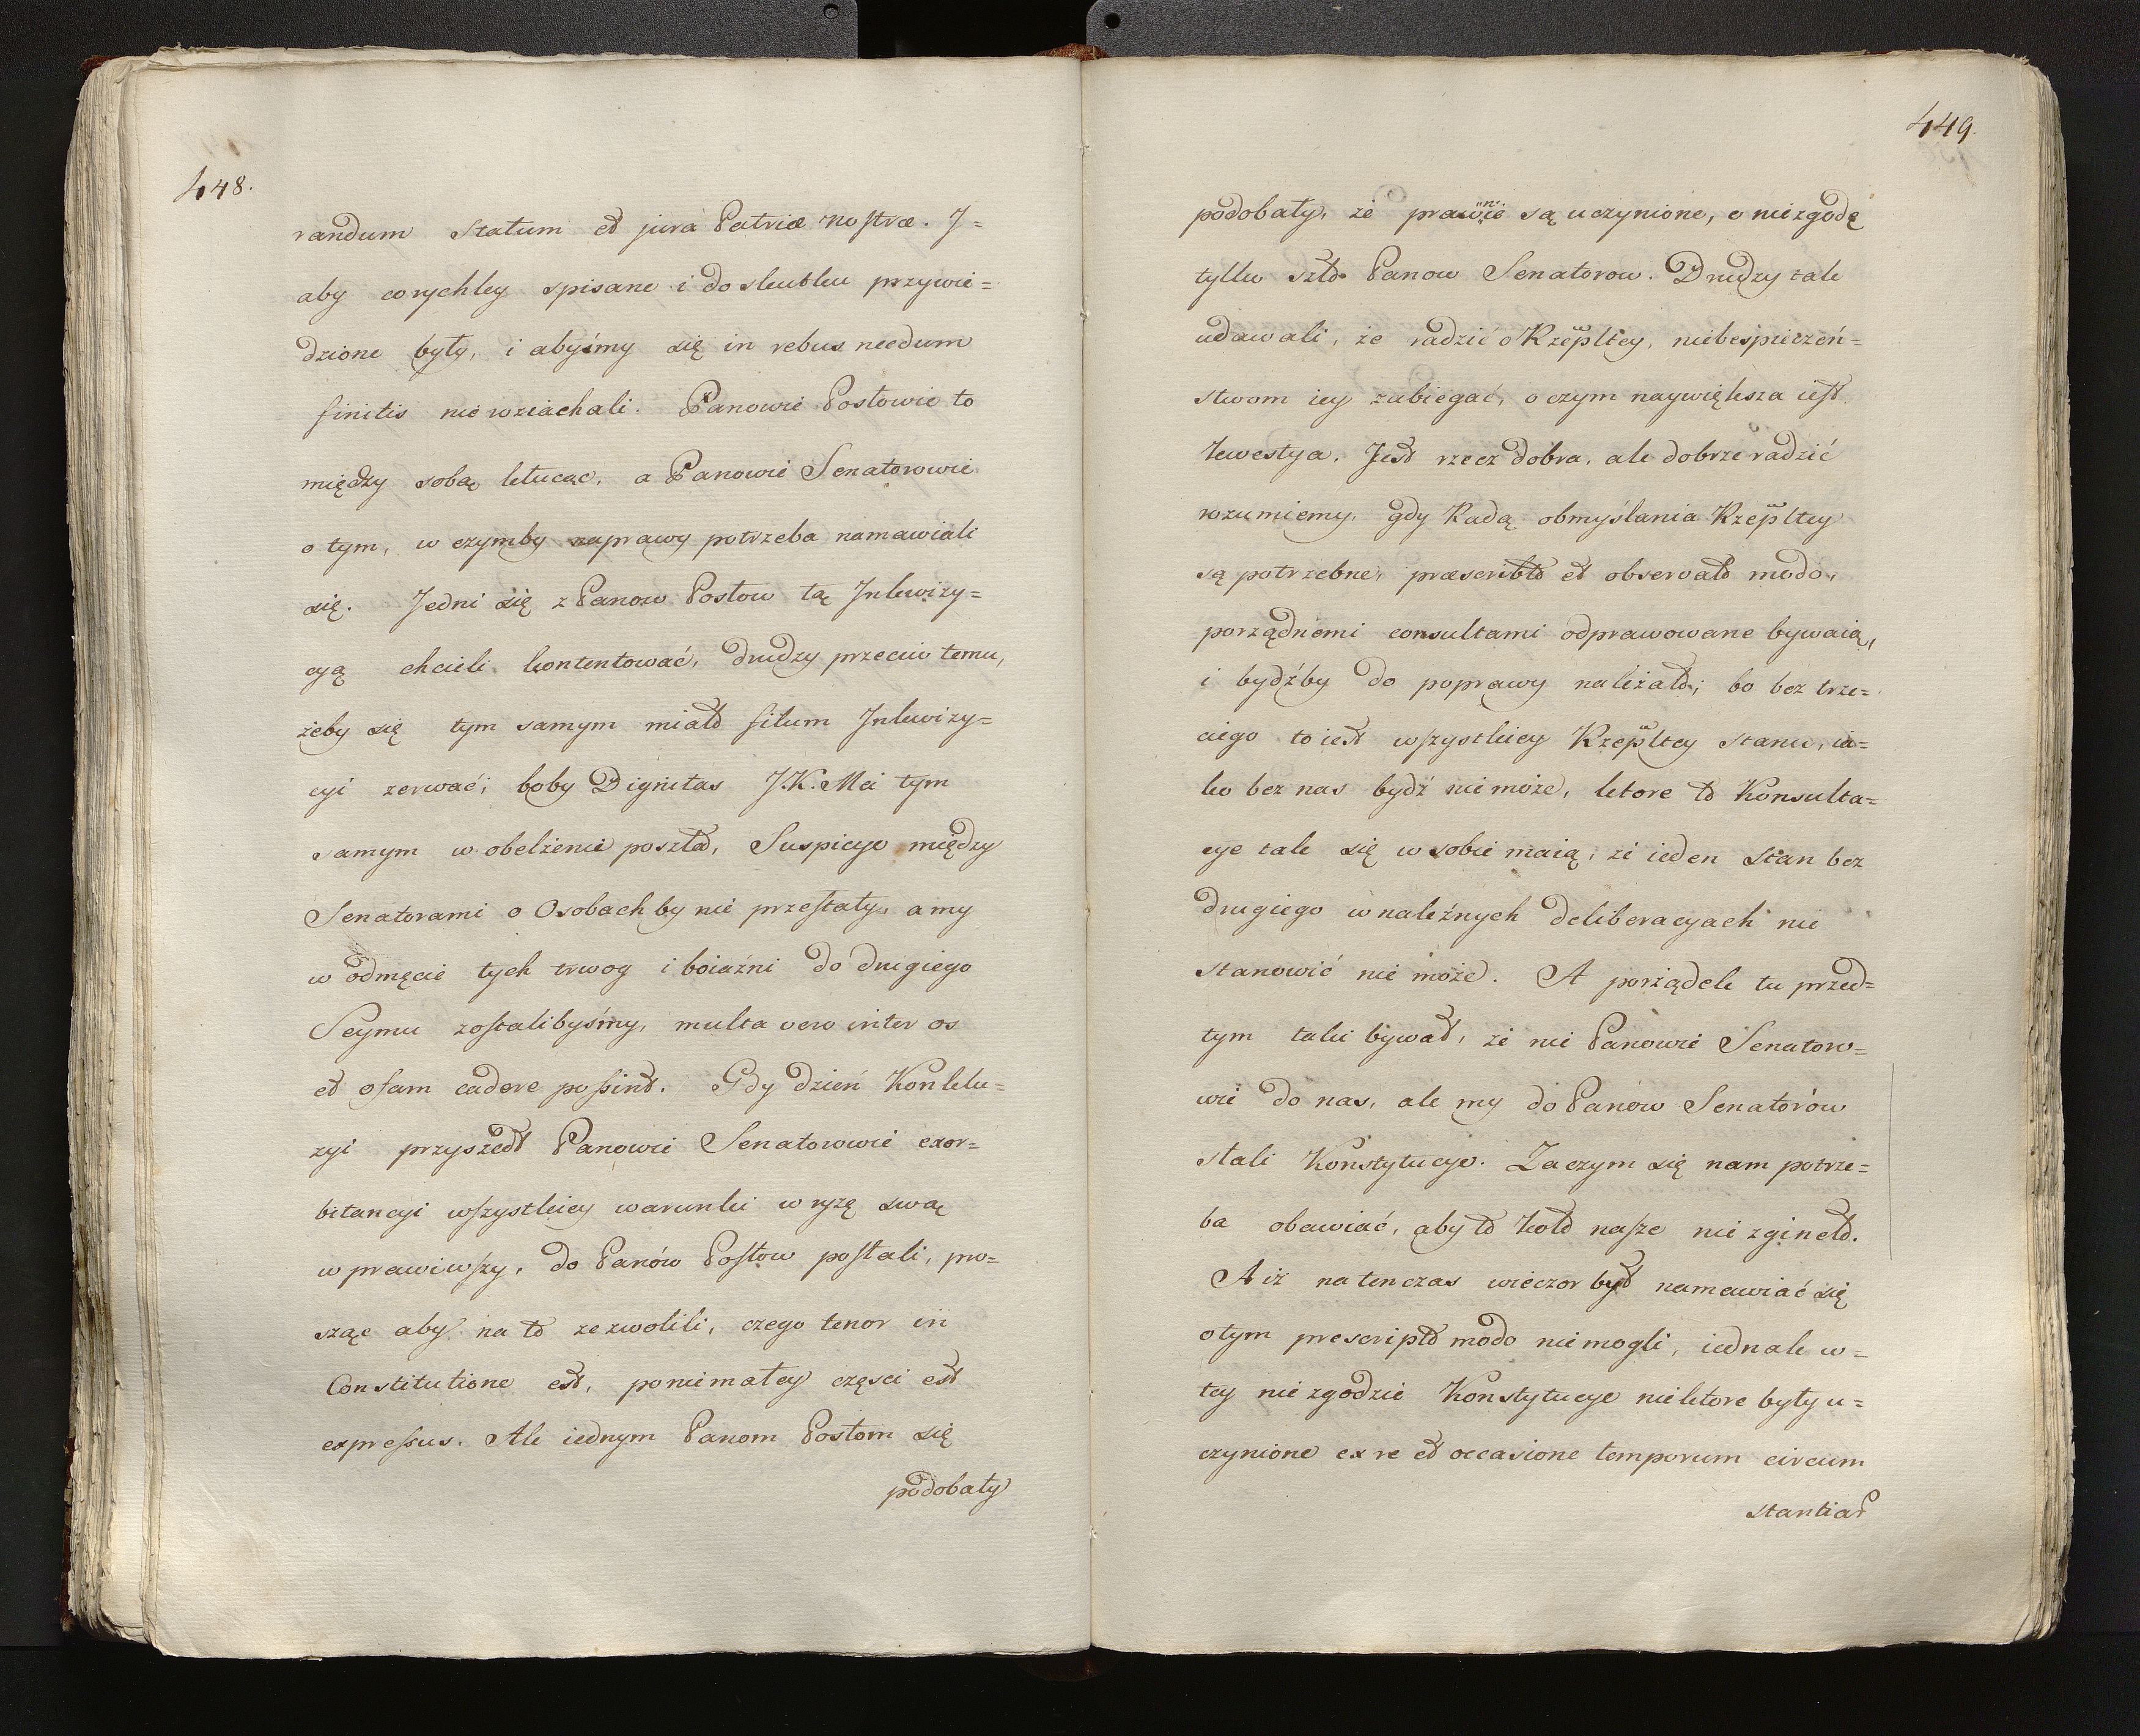 448.
randum statum et jura Patriæ nostræ. J=
aby corychley spisane i do skutku przywie=
dzione były, i abyśmy się in rebus necdum
finitis nie rozjachali. Panowie Posłowie to
między sobą ktucąc, a Panowie Senatorowie
o tym, w czymby naprawy potrzeba namawiali
się. Jedni się z Panow Posłow tą Inkwizy=
cyą chcieli kontentować, drudzy przeciw temu,
żeby się tym samym miało filum Inkwizy=
cyi zerwać; boby Dignitas J.K.Mci tym
samym w obelżenie poszła, Suspicye między
Senatorami o Osobach by nie przestały, a my
w odmęcie tych trwog i boiaźni do drugiego
Seymu zostalibyśmy, multa vero inter os
et ofam cadere possint. Gdy dzień Konklu=
zyi przyszedł Panowie Senatorowie exor=
bitancyi wszystkiey warunki w ryzę swą
wprawiwszy, do Panów Posłow posłali, pro=
sząc aby na to zezwolili, czego tenor in
Constitutione est, poniemałey częsci est
expressus. Ale iednym Panom Posłom się
podobały
449.
podobały, że prawnie są uczynione, o niezgodę
tylko szło Panow Senatorow. Drudzy tak
udawali, że radzić o Rzepltey, niebespieczeń=
stwom iey zabiegać, o czym naywiększa iest
kwestya. Jest rzecz dobra, ale dobrze radzić
rozumiemy, gdy Radą obmyślania Rzepltey
są potrzebne, præscribto et observato modo,
porządnemi consultami odprawowane bywaią,
i bydźby do poprawy należało; bo bez trze=
ciego to iest wszystkiey Rzepltey stanu, ia=
ko bez nas bydź nie może, ktore to Konsulta=
cye tak się w sobie maią, że ieden stan bez
drugiego w należnych deliberacyach nie
stanowić nie może. A porządek tu przed=
tym taki bywał, że nie Panowie Senatoro=
wie do nas, ale my do Panów Senatorów
słali Konstytucye. Zaczym się nam potrze=
ba obawiać, aby to koło nasze nie zgineło.
A iż na ten czas wieczor był namawiać się
o tym prescripto modo nie mogli, iednak w=
tey niezgodzie Konstytucye niektore były u=
czynione ex re et occasione temporum circum
stantias